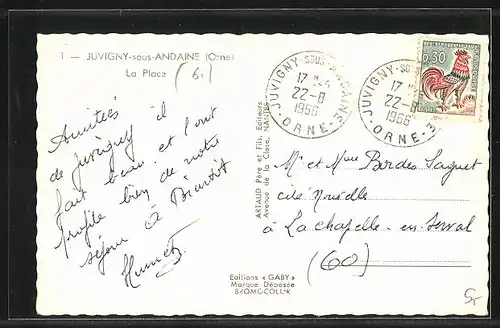 1 — JUVIGNY-sous-ANDAINE (Orne)
La Place (6.)
Amitiés
de Juvigny il
fait beau et l'ont
profite bien de notre
séjour à Biantôt
ARTAUD Père et Fils, Editeurs
Avenue de la Close, NANTES
Editions « GABY »
Marque Déposée
BROMOCOLOR
JUVIGNY-SOUS-ANDAINE
17 H
22-8
1966
ORNE
JUVIGNY-SO
17 H
22-8
1966
ORNE
0,30
Mr et Mme Bordes Saguet
cité
à La chapelle-en-Serval
(60)